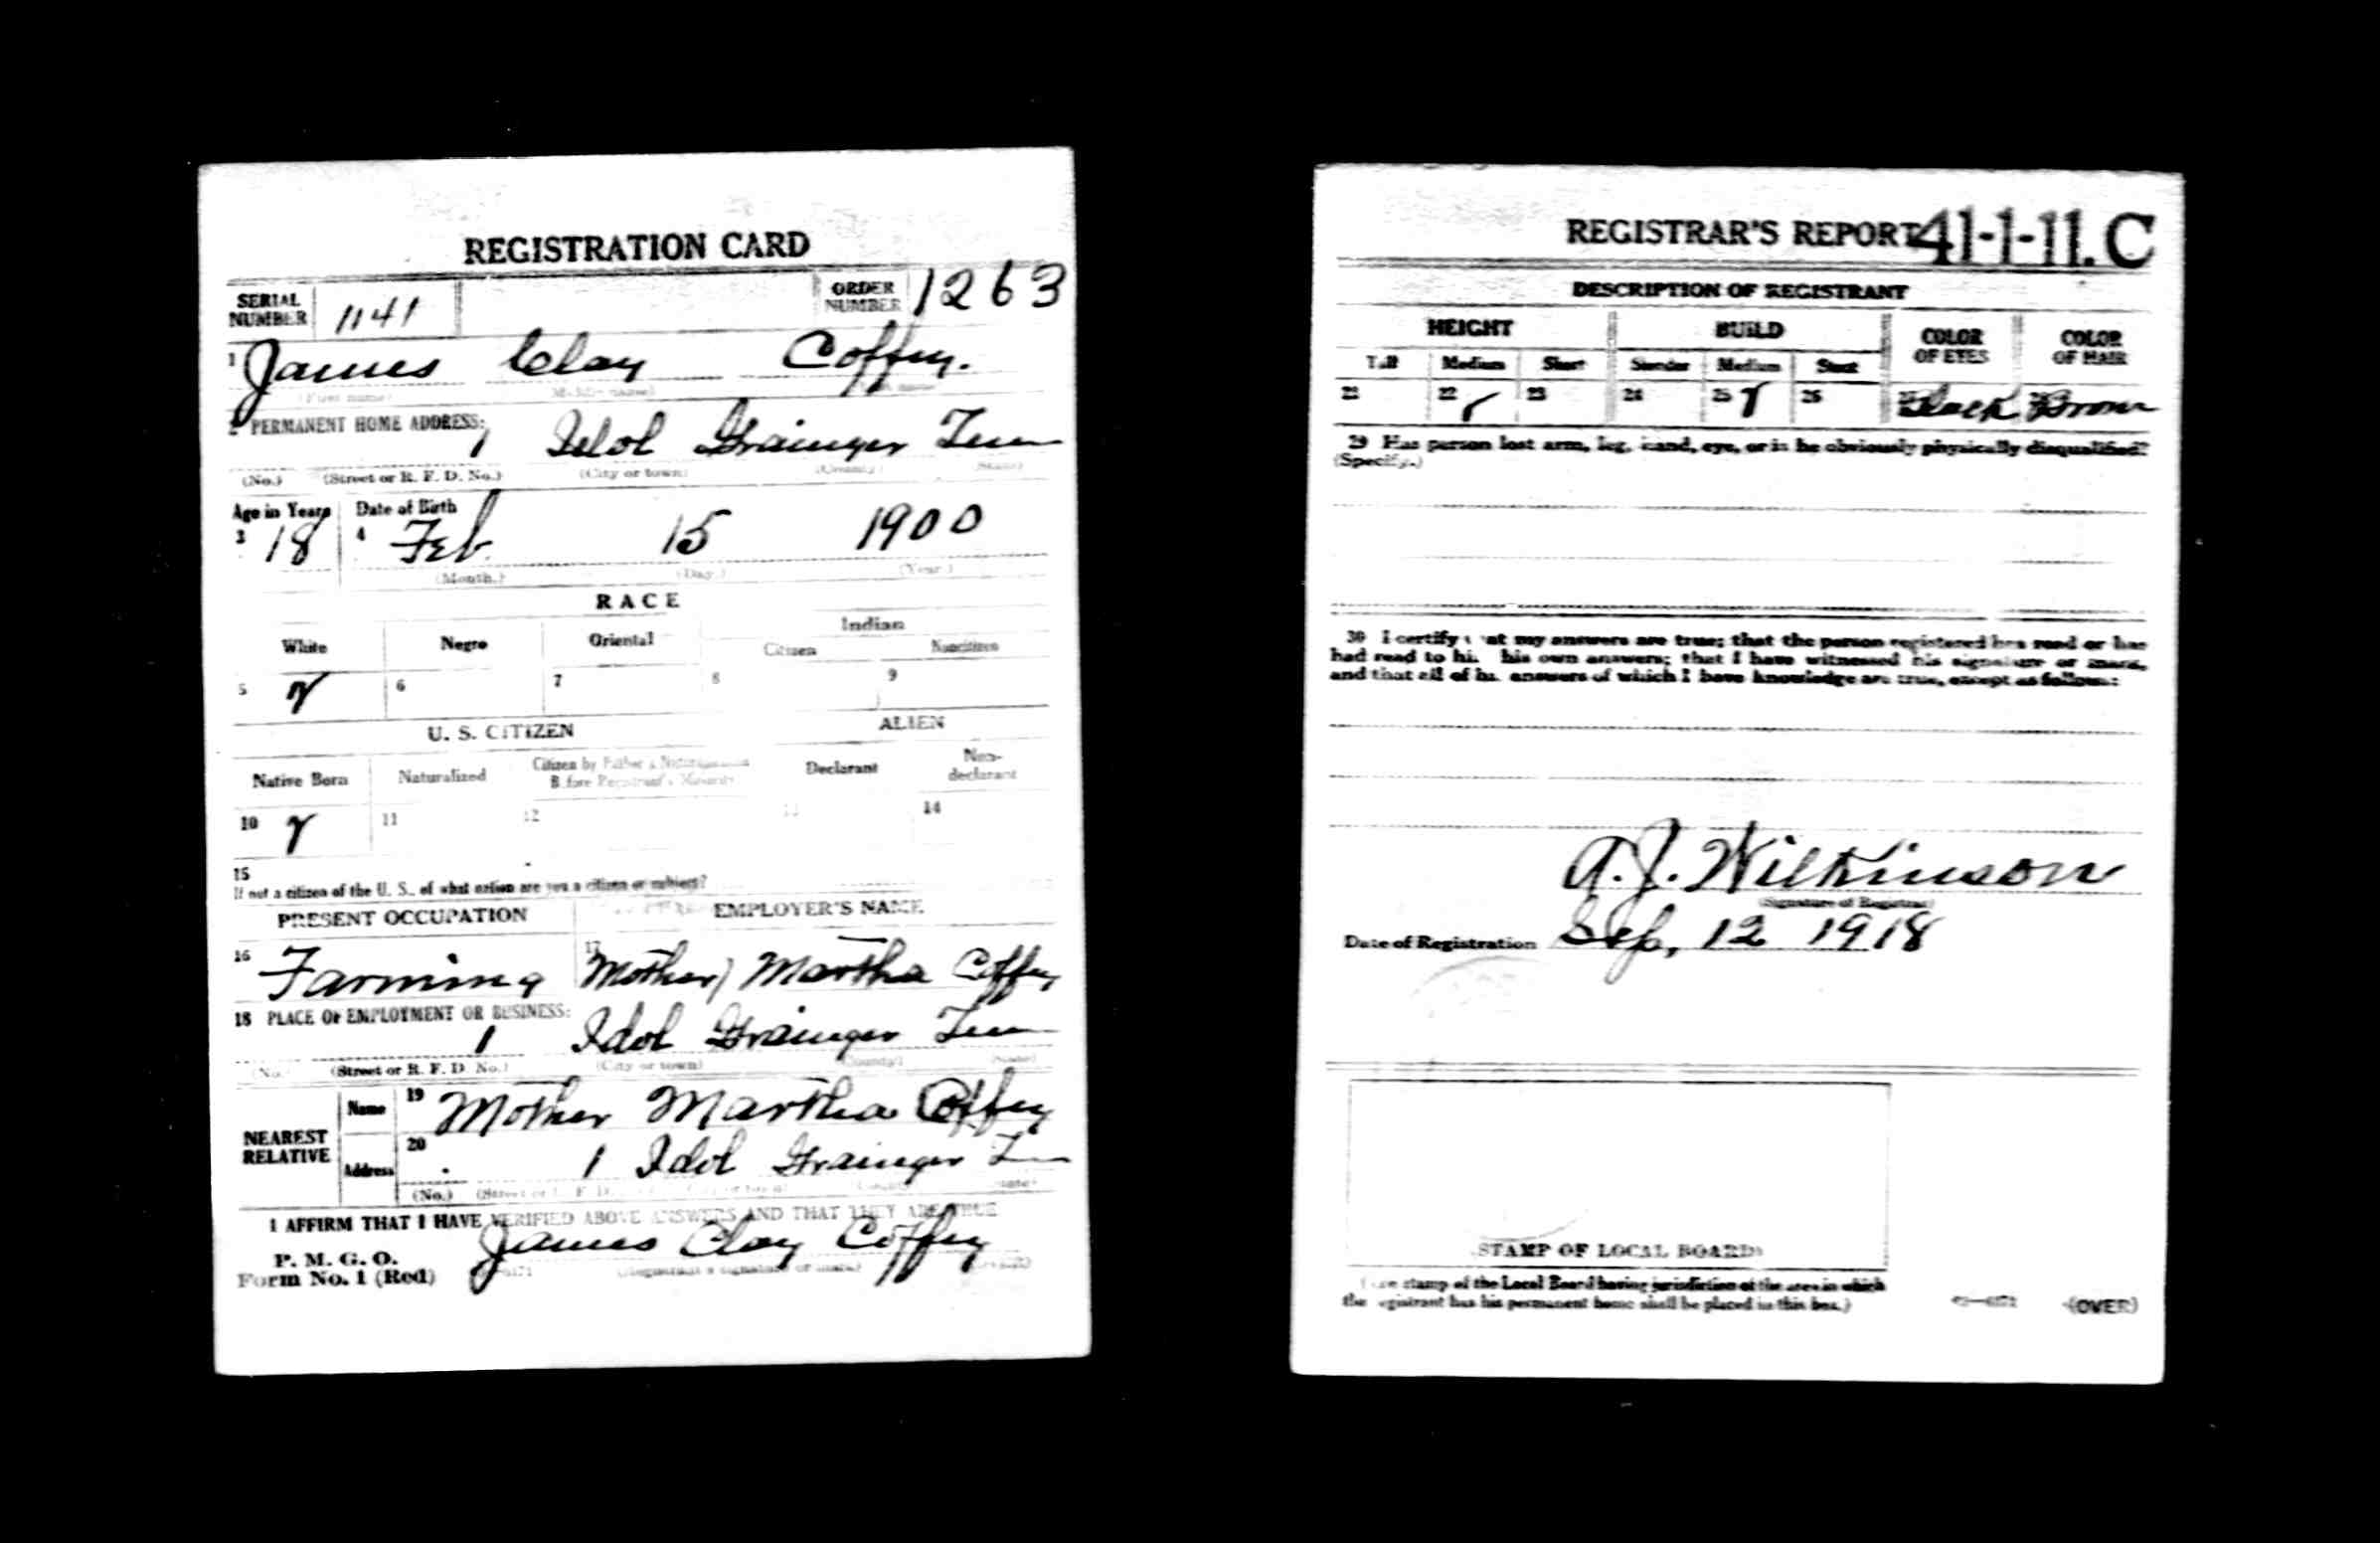 REGISTRATION CARD
SERIAL NUMBER 1141 ORDER NUMBER 1263
1 James Clay Coffey.
(First name) (Middle name)
2 PERMANENT HOME ADDRESS:
1 Idol Grainger Tenn
(No.) (Street or R. F. D. No.) (City or town) (County) (State)
Age in Years Date of Birth
3 18 4 Feb. 15 1900
(Month.) (Day.) (Year.)
RACE
White Negro Oriental Indian
Citizen Noncitizen
5 6 7 8 9
U. S. CITIZEN ALIEN
Native Born Naturalized Citizen by Father's Naturalization Before Registrant's Majority Declarant Non-declarant
10 11 12 13 14
15
If not a citizen of the U. S., of what nation are you a citizen or subject?
PRESENT OCCUPATION EMPLOYER'S NAME
16 Farming 17 Mother) Martha Coffey
18 PLACE OF EMPLOYMENT OR BUSINESS:
1 Idol Grainger Tenn
(No.) (Street or R. F. D. No.) (City or town) (County) (State)
NEAREST RELATIVE
Name 19 Mother Martha Coffey
Address 20 1 Idol Grainger
(No.) (Street or R. F. D. No.) (City or town) (County) (State)
I AFFIRM THAT I HAVE VERIFIED ABOVE ANSWERS AND THAT THEY ARE TRUE
P. M. G. O.
Form No. 1 (Red) James Clay Coffey
(Registrant's signature or mark)
REGISTRAR'S REPORT 41-1-11. C
DESCRIPTION OF REGISTRANT
HEIGHT BUILD COLOR OF EYES COLOR OF HAIR
Tall Medium Short Slender Medium Stout
21 22 23 24 25 26 27 Black 28 Brown
29 Has person lost arm, leg, hand, eye, or is he obviously physically disqualified?
(Specify.)
30 I certify that my answers are true; that the person registered has read or has
had read to him his own answers; that I have witnessed his signature or mark,
and that all of his answers of which I have knowledge are true, except as follows:
A. J. Wilkinson
(Signature of Registrar)
Date of Registration Sep, 12 1918
STAMP OF LOCAL BOARD
(The stamp of the Local Board having jurisdiction of the area in which
the registrant has his permanent home shall be placed in this box.)
(OVER)